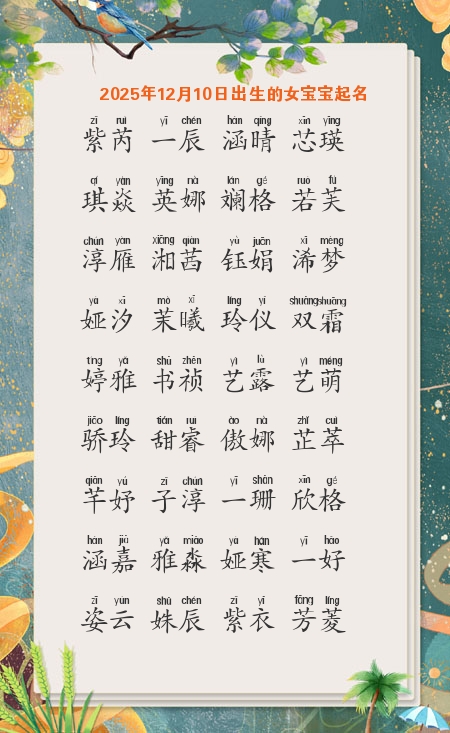 2025年12月10日出生的女宝宝起名
zǐ ruì yī chén hàn qíng xīn yīng
紫芮 一辰 涵晴 芯瑛
qí yàn yīng nà lán gé ruò fú
琪焱 英娜 斓格 若芙
chún yàn xiāng qiàn yù juān xī mèng
淳雁 湘茜 钰娟 浠梦
yà xī mò xī líng yí shuāng shuāng
娅汐 茉曦 玲仪 双霜
tíng yǎ shū zhēn yì lù yì méng
婷雅 书祯 艺露 艺萌
jiāo líng tián ruì ào nà zhǐ cuì
骄玲 甜睿 傲娜 芷萃
qiān yú zǐ chún yī shān xīn gé
芊妤 子淳 一珊 欣格
hàn jiā yǎ miǎo yà hán yī hǎo
涵嘉 雅淼 娅寒 一好
zī yún shū chén zǐ yī fāng líng
姿云 姝辰 紫衣 芳菱